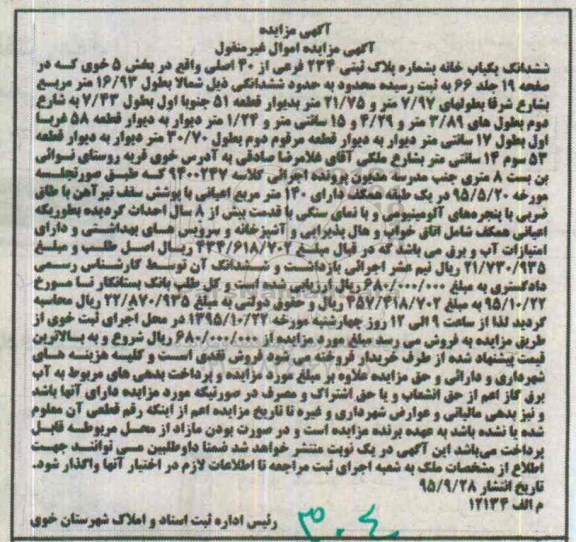 آگهی مزایده
آگهی مزایده اموال غیرمنقول
ششدانگ یکباب خانه بشماره پلاک ثبتی ۲۳۴ فرعی از ۴۰ اصلی واقع در بخش ۵ خوی که در
صفحه ۱۹ جلد ۶۶ به ثبت رسیده محدود به حدود ششدانگی ذیل شمالا بطول ۱۶/۹۳ متر مربع
بشارع شرقا بطولهای ۷/۹۷ متر و ۲۱/۷۵ متر بدیوار قطعه ۵۱ جنوبا اول بطول ۷/۴۳ به شارع
دوم بطول های ۳/۸۹ متر و ۴/۲۹ و ۱۵ سانتی متر و ۱/۲۴ متر دیوار به دیوار قطعه ۵۸ غربا
اول بطول ۱۷ سانتی متر دیوار به دیوار قطعه مرقوم دوم بطول ۳۰/۷۰ متر دیوار به دیوار قطعه
۵۳ سوم ۱۴ سانتی متر بشارع ملکی آقای غلامرضا صادقی به آدرس خوی قریه روستای نوائی
بن بست ۸ متری جنب مدرسه مدیون پرونده اجرائی کلاسه ۹۴۰۰۲۳۷ که طبق صورتجلسه
مورخه ۹۵/۵/۲۰ در یک طبقه همکف دارای ۱۴۰ متر مربع اعیانی با پوشش سقف تیرآهن با طاق
ضربی با پنجره های آلومینیومی و با نمای سنگی با قدمت بیش از ۸ سال احداث گردیده بطوریکه
اعیانی همکف شامل اتاق خواب و هال پذیرایی و آشپزخانه و سرویس های بهداشتی و دارای
امتیازات آب و برق می باشد که در قبال مبلغ ۴۳۴/۶۱۸/۷۰۲ ریال اصل طلب و مبلغ
۲۱/۷۳۰/۹۳۵ ریال نیم عشر اجرائی بازداشت و ششدانگ آن توسط کارشناس رسمی
دادگستری به مبلغ ۶۸۰/۰۰۰/۰۰۰ ریال ارزیابی شده است و کل طلب بانک بستانکار تا مورخ
۹۵/۱۰/۲۲ به مبلغ ۴۵۷/۴۱۸/۷۰۲ ریال و حقوق دولتی به مبلغ ۲۲/۸۷۰/۹۳۵ ریال محاسبه
گردید لذا از ساعت ۹ الی ۱۲ روز چهارشنبه مورخه ۱۳۹۵/۱۰/۲۲ در محل اجرای ثبت خوی از
طریق مزایده به فروش می رسد مبلغ مورد مزایده از ۶۸۰/۰۰۰/۰۰۰ ریال شروع و به بالاترین
قیمت پیشنهاد شده از طرف خریدار فروخته می شود فروش نقدی است و کلیه هزینه های
شهرداری و دارائی و حق مزایده علاوه بر مبلغ مورد مزایده و پرداخت بدهی های مربوط به آب
برق گاز اعم از حق انشعاب و یا حق اشتراک و مصرف در صورتیکه مورد مزایده دارای آنها باشد
و نیز بدهی مالیاتی و عوارض شهرداری و غیره تا تاریخ مزایده اعم از اینکه رقم قطعی آن معلوم
شده یا نشده باشد به عهده برنده مزایده است و در صورت بودن مازاد از محل مربوطه قابل
پرداخت می‌باشد این آگهی در یک نوبت منتشر خواهد شد ضمنا داوطلبین می توانند جهت
اطلاع از مشخصات ملک به شعبه اجرای ثبت مراجعه تا اطلاعات لازم در اختیار آنها واگذار شود.
تاریخ انتشار ۹۵/۹/۲۸
م الف ۱۲۱۳۴
رئیس اداره ثبت اسناد و املاک شهرستان خوی